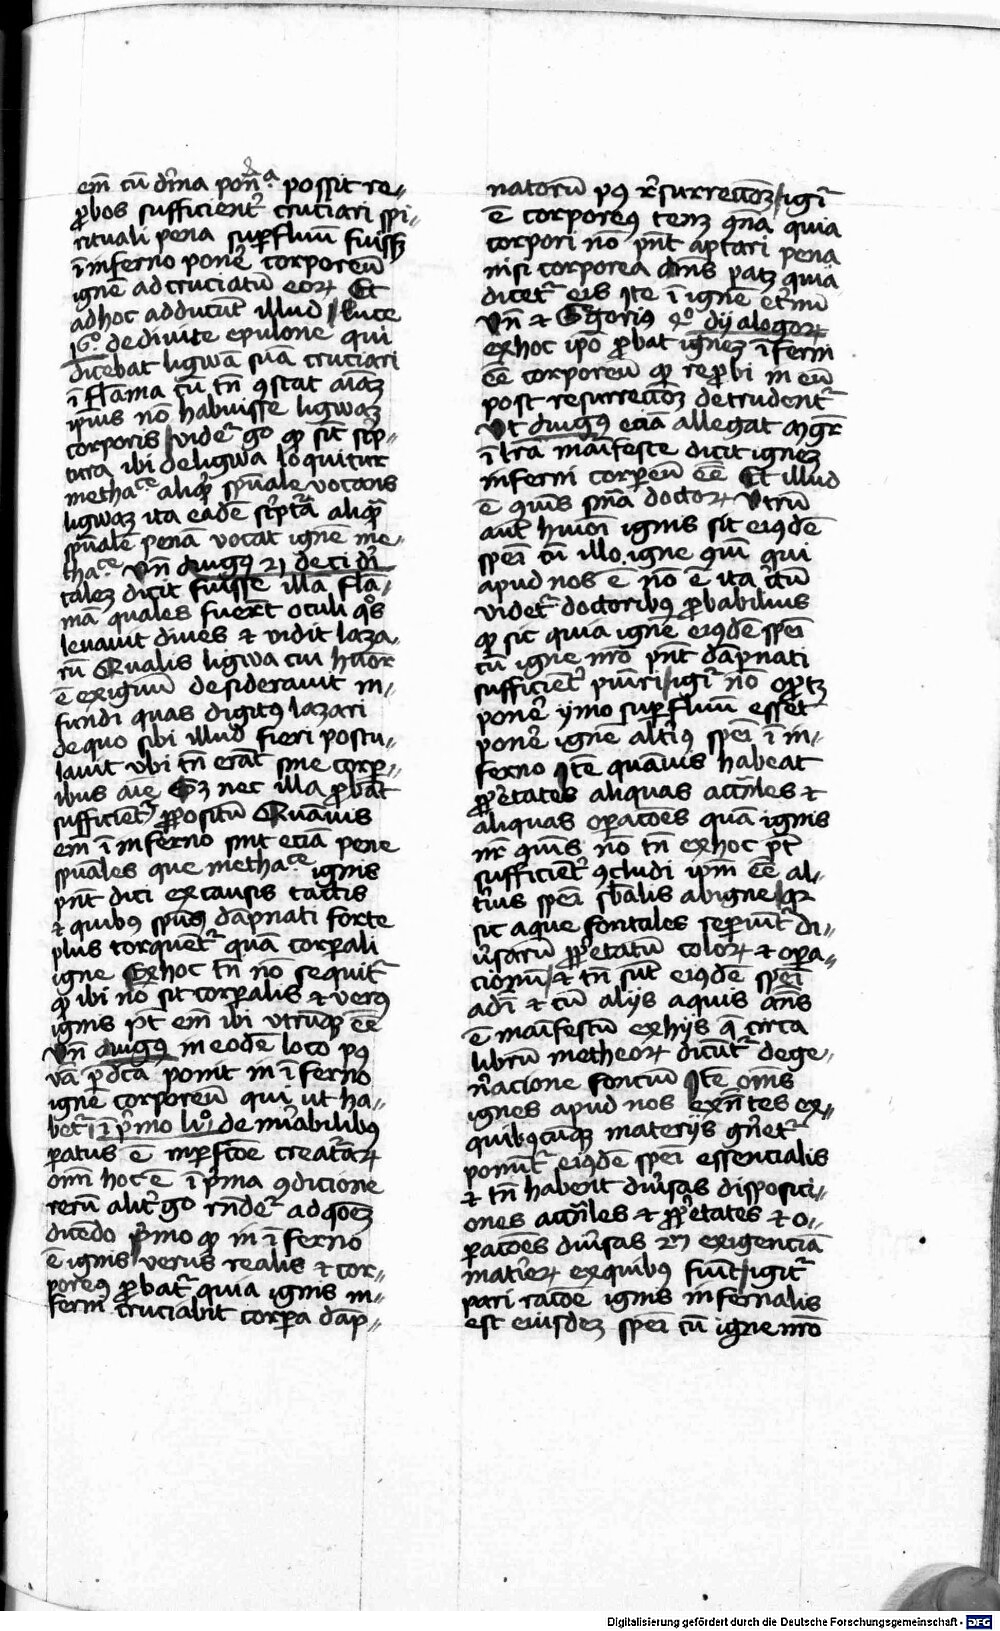 em̄ cū dīna pon̄ᵃ possit re„
ꝓbos sufficient᷑ cruciari spi„
rituali pena suꝑfluū fuiss
ī inferno pone᷑ corporeū
ignē ad cruciatū eoꝝ Et
ad hoc adducūt illud luce
16º de divite epulone qui
dicebat ligwā suā cruciari
ī flāma cū tn̄ ꝯstat aīaꝫ
ip̄ius nō habuisse ligwaꝫ
corporis vide᷑ gͦ ꝙ sic̄ sc̄p„
tura ibi de ligwa loquitur
methaᶜᵉ aliqͥd sp̄uale vocans
ligwaꝫ ita eadē sc̄ptᵃ aliquā
sp̄ualē penā vocat ignē me„
thaᶜᵉ Vn̄ Augꝰ 21 de ci dī
taleꝫ dicit fuisse illā flā„
mā quales fuer̄t oculi qͦs
levauit dives ⁊ vidit laza„
rū Qualis ligwa cui huōr
ē exiguū desiderauit in„
fundi quas digitꝰ lazari
de quo sibi illud fieri postu„
lauit vbi tn̄ erāt sine corpor„
ibus aīe Sꝫ nec illa ꝓbāt
sufficient᷑ ꝓpositū Quāuis
em̄ ī inferno sint eciā pene
sp̄uales que methaᶜᵉ ignis
pn̄t dici ex causis tactis
⁊ quibꝰ spūs dāpnati forte
plus torquēt᷑ quā corꝑali
igne Ex hoc tn̄ nō sequit᷑
ꝙ ibi nō sit corꝑalis ⁊ verꝰ
ignis pt̄ em̄ ibi vtrūqꝫ eē
Vn̄ Augꝰ in eodē loco pꝰ
vā p̄dc̄a ponit in īferno
ignē corporeū qui ut ha„
bet᷑ ī pͥmo liº de mirabilibꝰ
ꝑatus ē in ꝑfcōe creatᵃꝝ
om̄ hoc ē ī pͥma ꝯdicione
rerū alit᷑ gͦ rn̄de᷑ ad qōeꝫ
dicēdo pͥmo ꝙ in īferno
ē ignis verus realis ⁊ cor„
poreꝰ ꝓbat᷑ quia ignis in„
ferni cruciabit corꝑa dāp„
natorū pꝰ r̄surreccōeꝫ igi᷑
ē corporeꝰ tenꝫ qn̄a quia
corpori nō pn̄t aptari pena
nisi corporea Ans̄ patꝫ quia
dicet᷑ eis Ite ī ignē et̄nū
Vn̄ ⁊ Gͤgoriꝰ 4º dyalogoꝝ
ex hoc ip̄o ꝓbat igneꝫ īferni
eē corporeū ꝙ reꝓbi in eū
post resurreccōeꝫ detrudent᷑
Vt Augꝰ eciā allegat mgr̄
ī lr̄a māifeste dicit igneꝫ
inferni corꝑeū eē Et illud
ē ꝯmūis snīa doctoꝝ Vtrū
aut̄ huiōi ignis sit eiꝰdē
spēi cū illo igne qui
apud nos ē nō ē ita c̄tū
videt᷑ doctoribꝰ ꝓbabilius
ꝙ sic quia ignē eiꝰdē spēi
cū igne nrō pn̄t dāpnati
sufficient᷑ puniri igi᷑ nō oꝑtꝫ
pone᷑ ymo suꝑfluū esset
pone᷑ ignē altiꝰ spēi ī in„
ferno Itē quāuis habeat
ꝓp̄etates aliquas accn̄les ⁊
aliquas oꝑacōes quā ignis
nr̄ quīs nō tn̄ ex hoc pt̄
sufficient᷑ ꝯcludi ip̄m eē al„
t̄ius spēi sb̄alis ab igne qꝛ
sic aque fontales reperiūt᷑ di„
u̇sarū ꝓp̄etatū coloꝝ ⁊ oꝑa„
cionū ⁊ tn̄ sūt eiꝰdē spēi
adī ⁊ cū alijs aquis Ans̄
ē māifestū ex hijs q̄ circa
librū metheoꝝ dicūt᷑ de ge„
n̄acione fonciū Itē om̄s
ignes apud nos exn̄tes ex„
quibꝰcūqꝫ materijs gn̄et᷑
ponūt᷑ eiꝰdē spēi essencialis
⁊ tn̄ habent diu̇sas disposici„
ones accn̄les ⁊ ꝓp̄etates ⁊ o„
ꝑacōes diu̇sas ẜm exigenciā
matieꝝ ex quibꝰ fiūt igit᷑
pari racōe ignis infernalis
est eiusdeꝫ spēi cū igne nrō
Digitalisierung gefördert durch die Deutsche Forschungsgemeinschaft - DFG